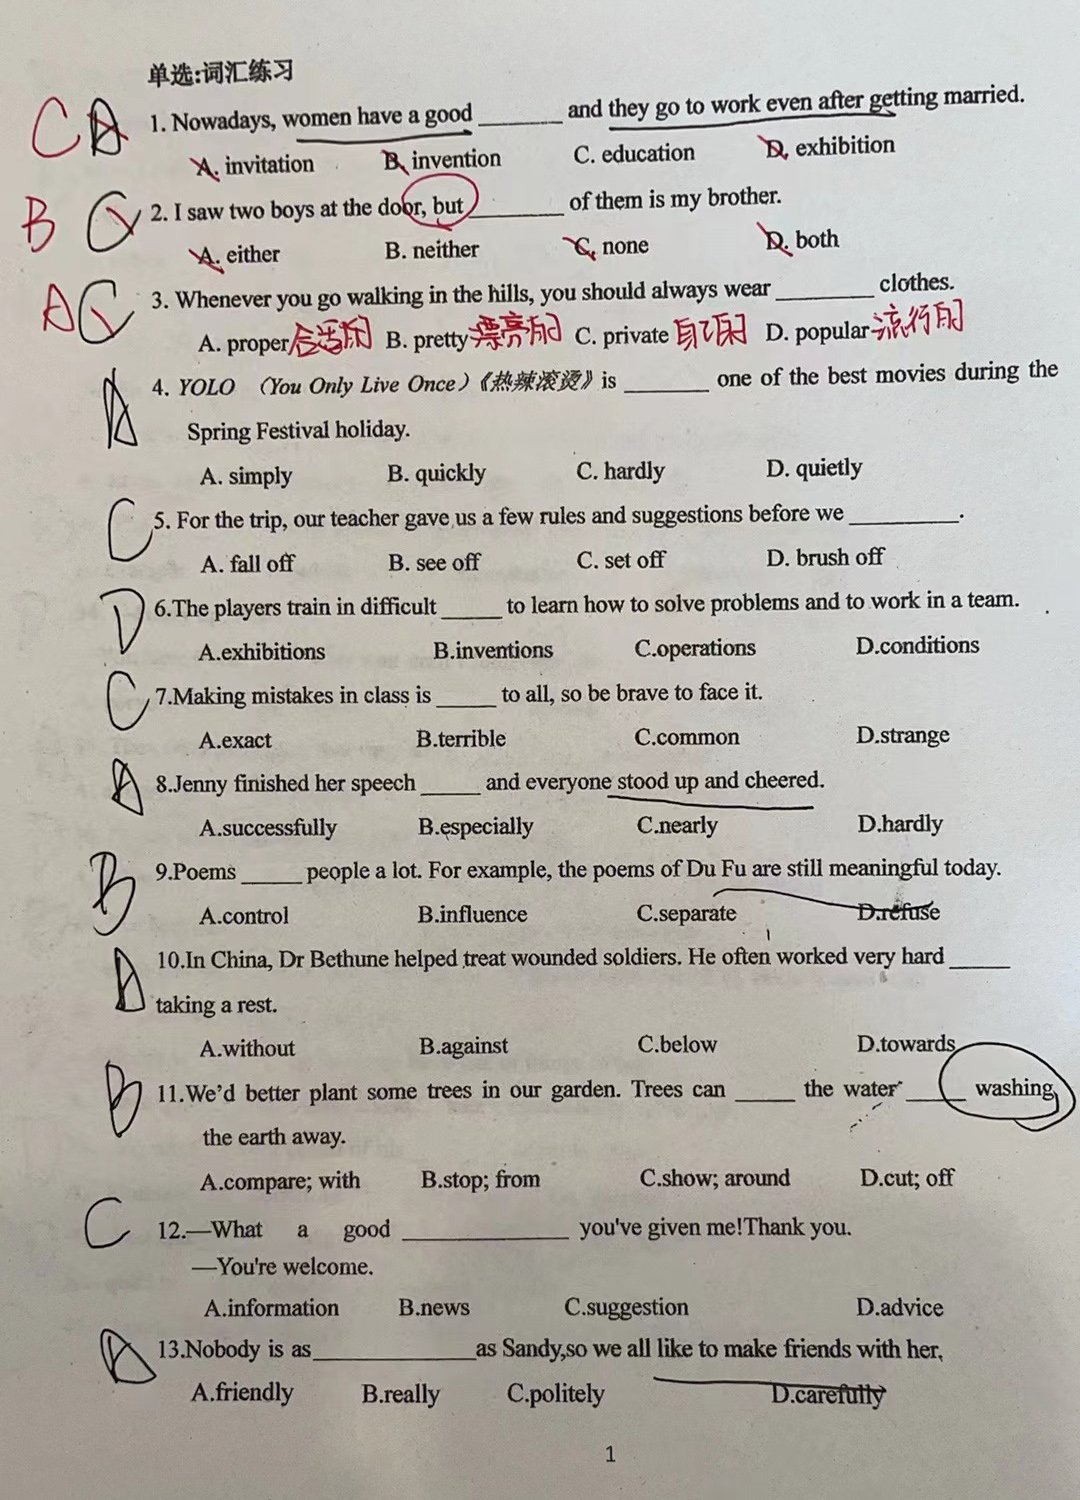 单选:词汇练习
C A 1. Nowadays, women have a good ________ and they go to work even after getting married.
A. invitation B. invention C. education D. exhibition
B C 2. I saw two boys at the door, but ________ of them is my brother.
A. either B. neither C. none D. both
A C 3. Whenever you go walking in the hills, you should always wear ________ clothes.
A. proper合适的 B. pretty漂亮的 C. private自己的 D. popular流行的
A 4. YOLO （You Only Live Once）《热辣滚烫》is ________ one of the best movies during the
Spring Festival holiday.
A. simply B. quickly C. hardly D. quietly
C 5. For the trip, our teacher gave us a few rules and suggestions before we ________.
A. fall off B. see off C. set off D. brush off
D 6.The players train in difficult _____ to learn how to solve problems and to work in a team.
A.exhibitions B.inventions C.operations D.conditions
C 7.Making mistakes in class is _____ to all, so be brave to face it.
A.exact B.terrible C.common D.strange
A 8.Jenny finished her speech _____ and everyone stood up and cheered.
A.successfully B.especially C.nearly D.hardly
B 9.Poems _____ people a lot. For example, the poems of Du Fu are still meaningful today.
A.control B.influence C.separate D.refuse
A 10.In China, Dr Bethune helped treat wounded soldiers. He often worked very hard _____
taking a rest.
A.without B.against C.below D.towards
B 11.We'd better plant some trees in our garden. Trees can _____ the water _____ washing
the earth away.
A.compare; with B.stop; from C.show; around D.cut; off
C 12.—What a good ______________ you've given me!Thank you.
—You're welcome.
A.information B.news C.suggestion D.advice
A 13.Nobody is as______________as Sandy,so we all like to make friends with her,
A.friendly B.really C.politely D.carefully
1